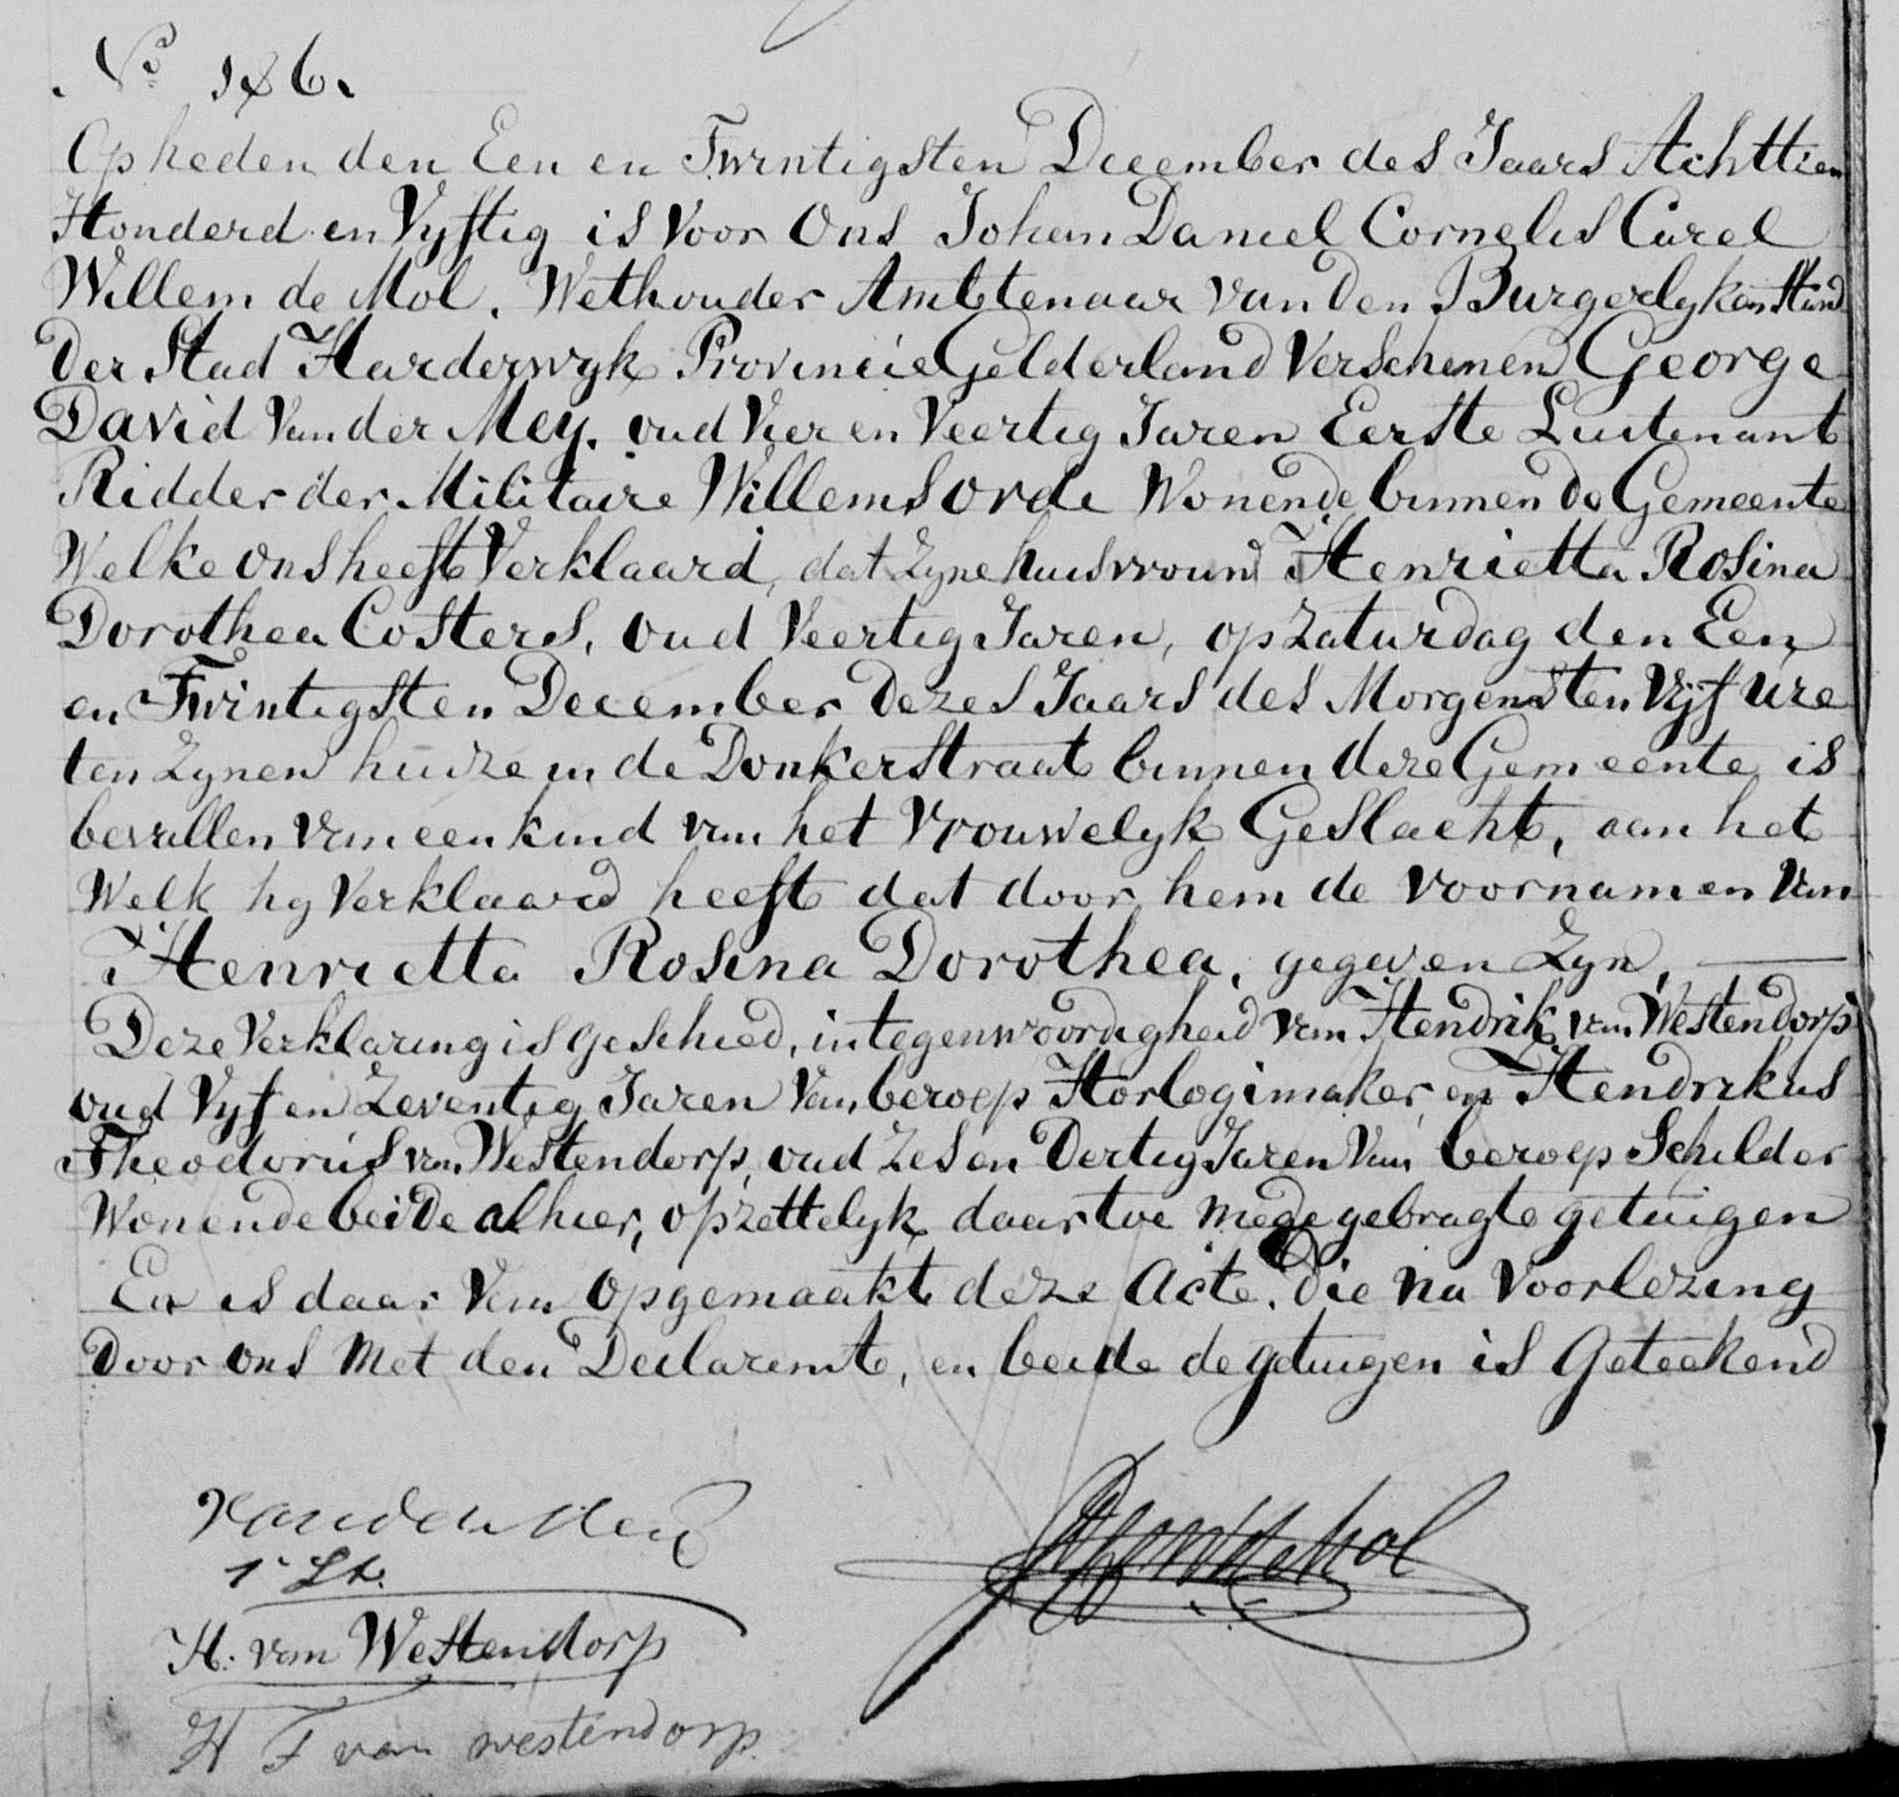 No 186.
Op heden den Een en Twintigsten December des Jaars Achttien
Honderd en Vyftig is Voor Ons Johan Daniel Cornelis Carel
Willem de Mol. Wethouder Ambtenaar van den Burgerlyken Stand
Der Stad Harderwyk Provincie Gelderland Verschenen George
David Van der Mey. oud Vier en Veertig Jaren Eerste Luitenant
Ridder der Militaire Willems Orde Wonende binnen de Gemeente
Welke ons heeft Verklaard, dat Zyne huisvrouw Henrietta Rosina
Dorothea Costers, oud Veertig Jaren, op Zaturdag den Een
en Twintigsten December Dezes Jaars des Morgens ten Vijf ure
ten Zynen huize in de Donkerstraat binnen deze Gemeente is
bevallen van een kind van het Vrouwelyk Geslacht, aan het
Welk hy Verklaard heeft dat door hem de Voornamen Van
Henrietta Rosina Dorothea, gegeven Zyn,
Deze Verklaring is geschied, in tegenwoordigheid van Hendrik van Westendorp
oud Vyf en Zeventig Jaren Van beroep Horlogimaker, en Hendrikus
Theodorus van Westendorp, oud Zes en Dertig Jaren Van beroep Schilder
Wonende beide alhier, opzettelyk daartoe medegebragte getuigen
En is daar Van Opgemaakt deze Acte. die Na Voorlezing
Door ons Met den Declarant, en beide de getuigen is Geteekend
Van der Mey
1e Lt.
H. van Westendorp
H T van westendorp.
de Mol